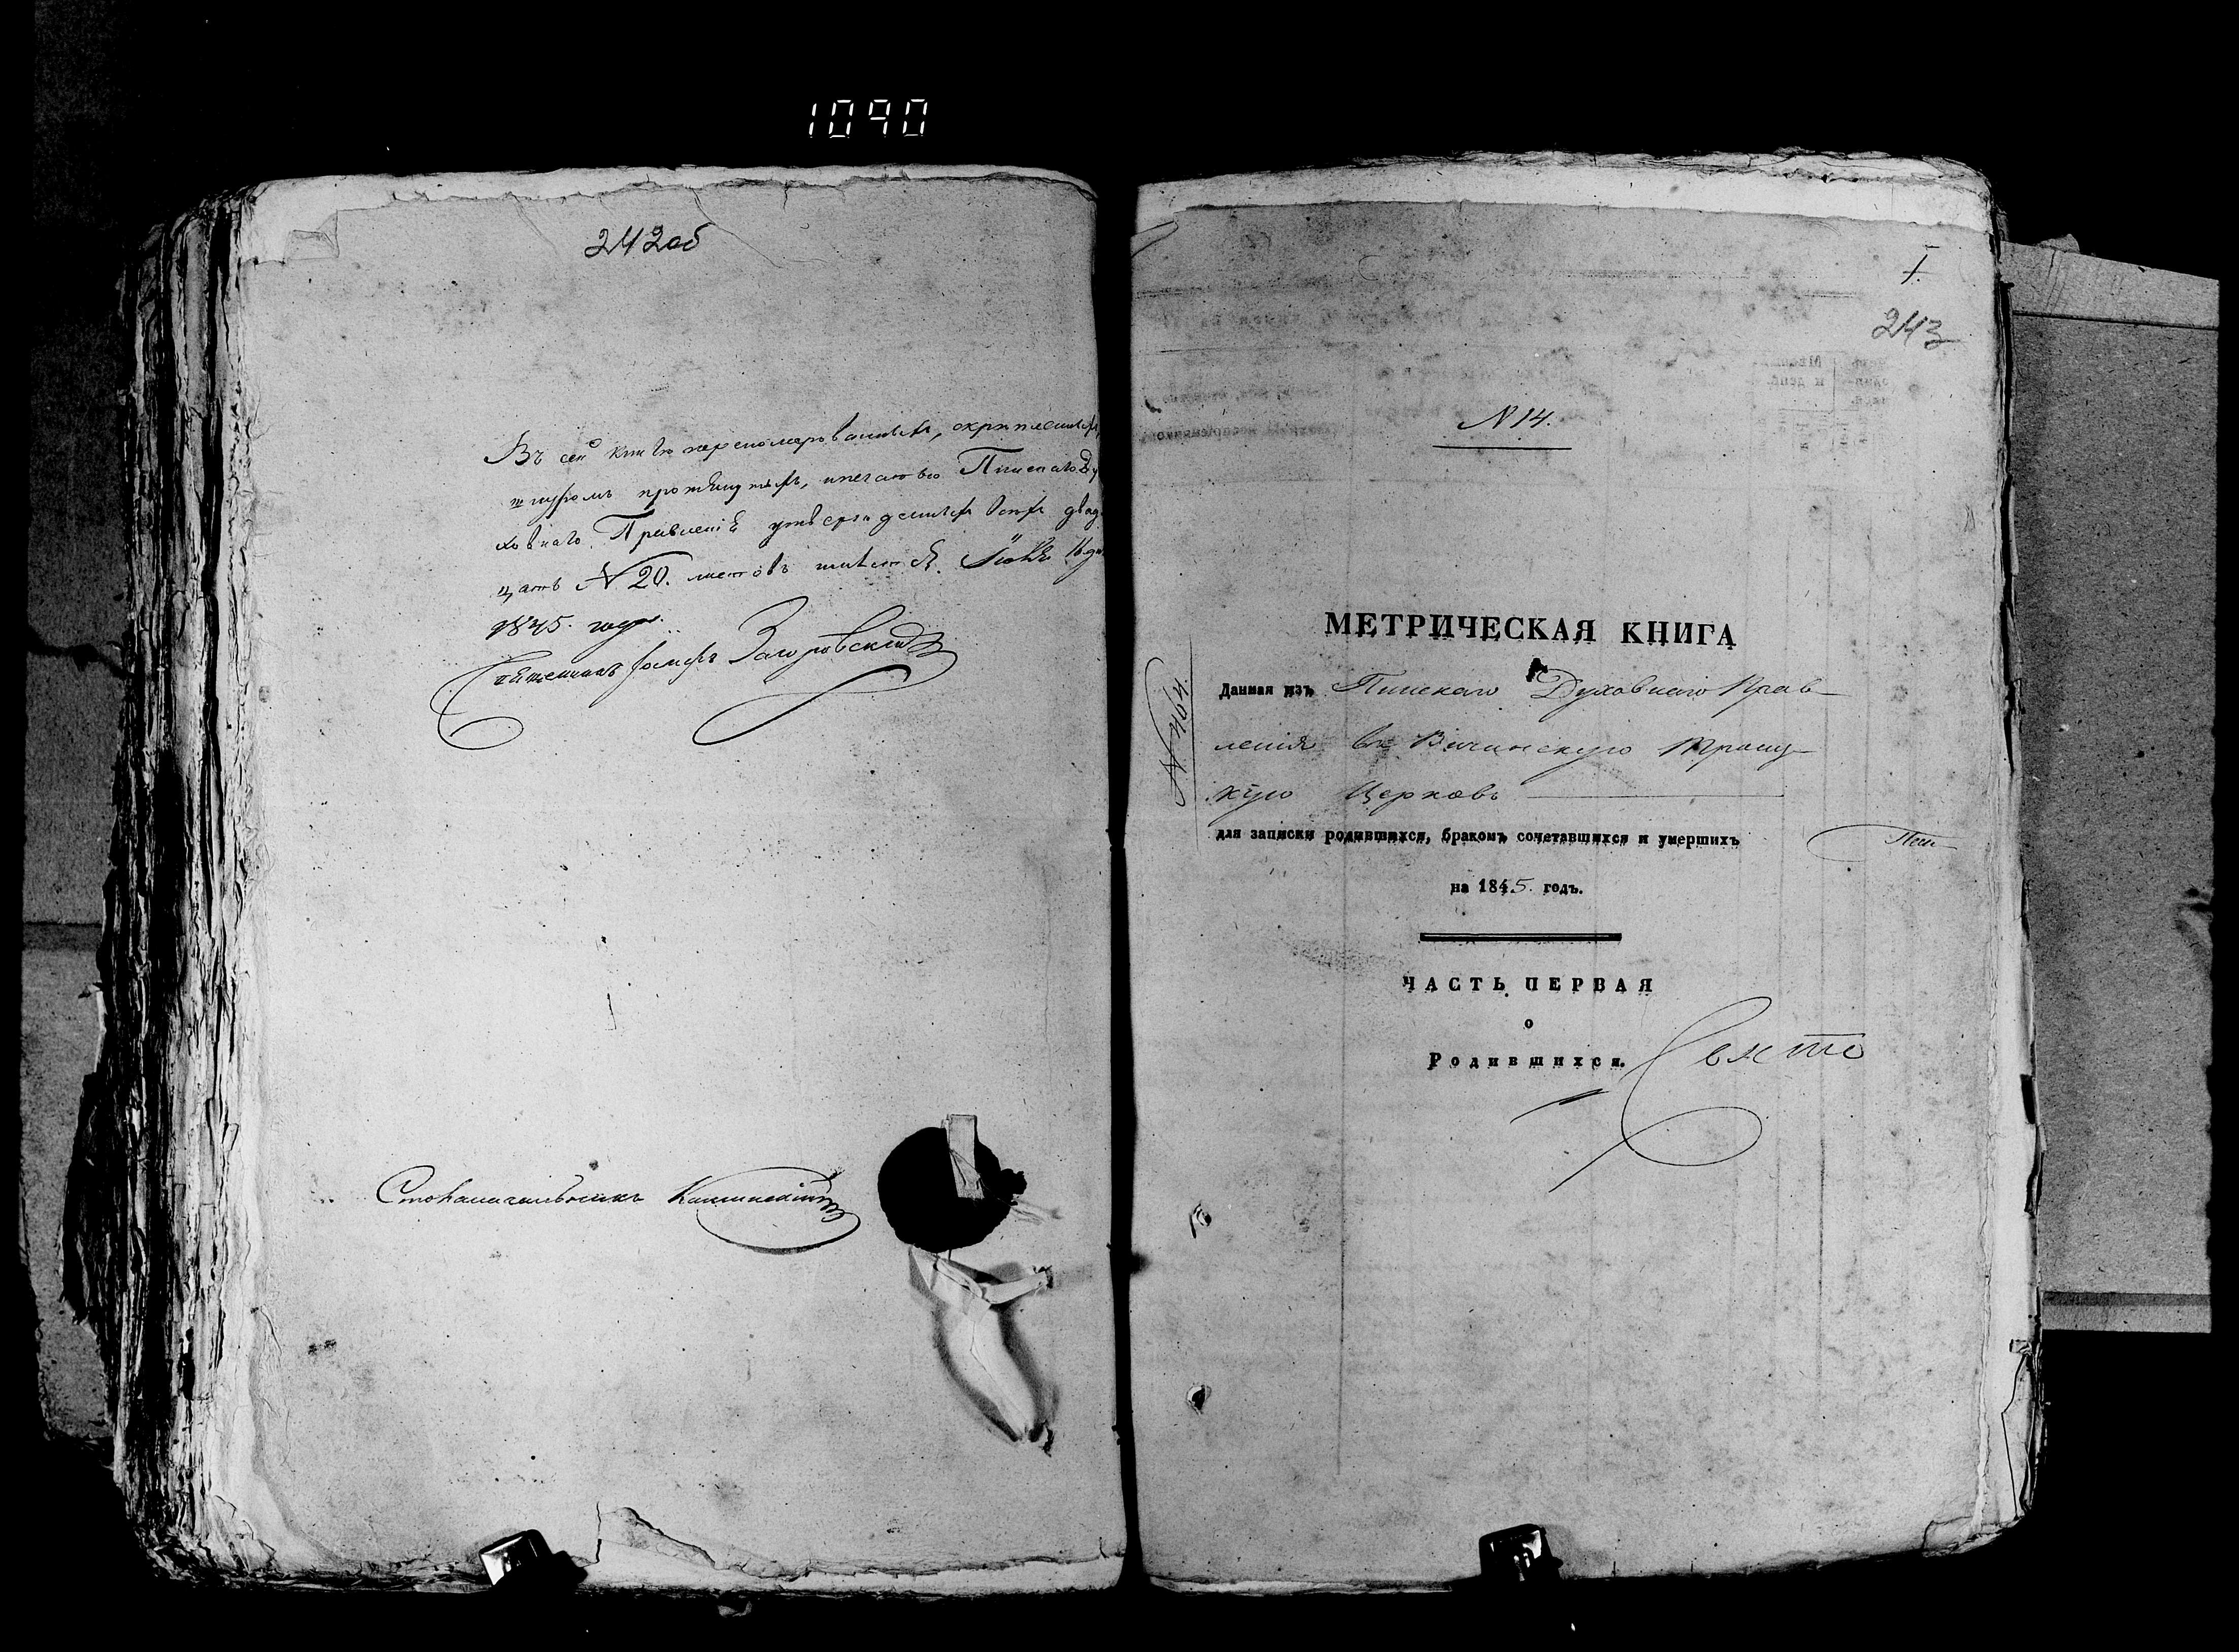 1090
242об
Въ сей книгѣ перенумерованныхъ, скрѣпленныхъ,
шнуромъ протянутыхъ, и печатью Пинскаго Ду
ховнаго Правленія утвержденныхъ двад
цать N 20. листовъ имѣется. 16 дня
1845. года.
Загоровскій
Столоначальникъ
I.
243
N 14.
МЕТРИЧЕСКАЯ КНИГА
Данная изъ Пинскаго Духовнаго Прав
ленія въ Вичинскую Троиц
кую Церковь
N 464.
для записки родившихся, бракомъ сочетавшихся и умершихъ
Пин
на 1845. годъ.
ЧАСТЬ ПЕРВАЯ
о
Родившихся.
Свято